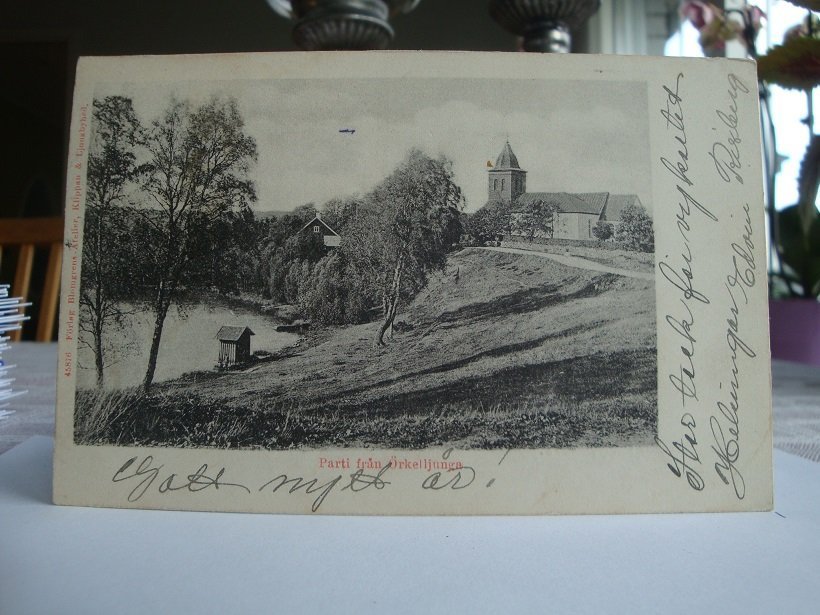 45876 - Förlag Blomgrens Atelier, Klippan & Ljungbyhed.
Parti från Örkelljunga
Gott nytt år!
Stor tack för vykortet
Helsningar Edvin